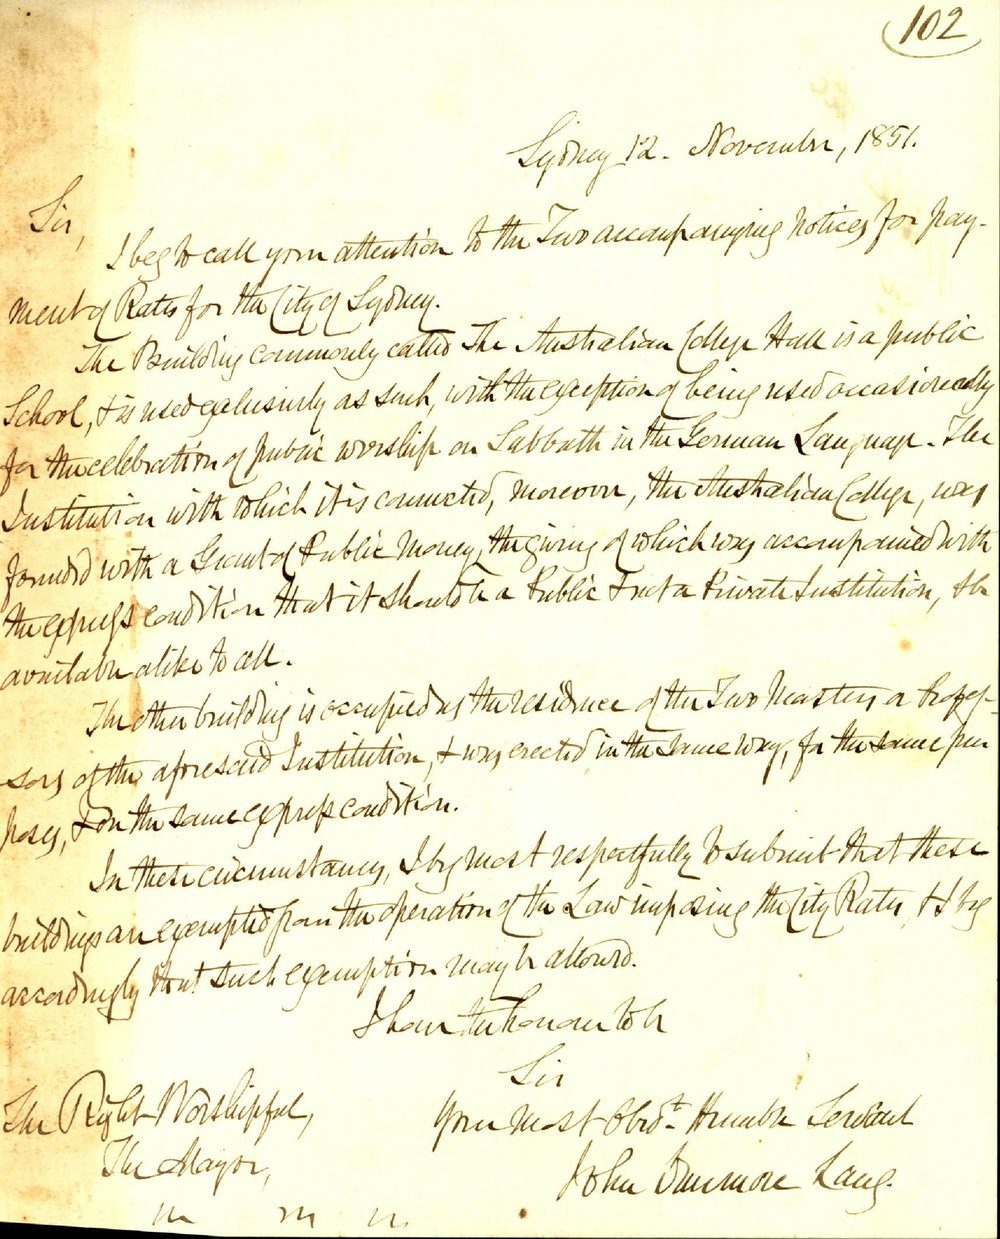 102
Sydney 12. November, 1851.
Sir,
I beg to call your attention to the Two accompanying notices for pay-
ment of Rates for the City of Sydney.
The Building commonly called The Australian College Hall is a public
School, & is used exclusively as such, with the exception of being used occasionally
for the celebration of public worship on Sabbath in the German Language. The
Institution with which it is connected, moreover, the Australian College, was
founded with a Grant of Public Money, the giving of which was accompanied with
the express condition that it should be a Public & not a Private Institution, & be
available alike to all.
The other building is occupied as the residence of the Two Masters or Profes-
sors of the aforesaid Institution, & was erected in the same way, for the same pur
poses, & on the same express condition.
In these circumstances, I beg most respectfully to submit that these
buildings are exempted from the operation of the Law imposing the City Rates & I beg
accordingly that such exemption may be allowed.
I have the honour to be
Sir
Your most Obedt. Humble Servant
John Dunmore Lang.
The Right Worshipful,
The Mayor,